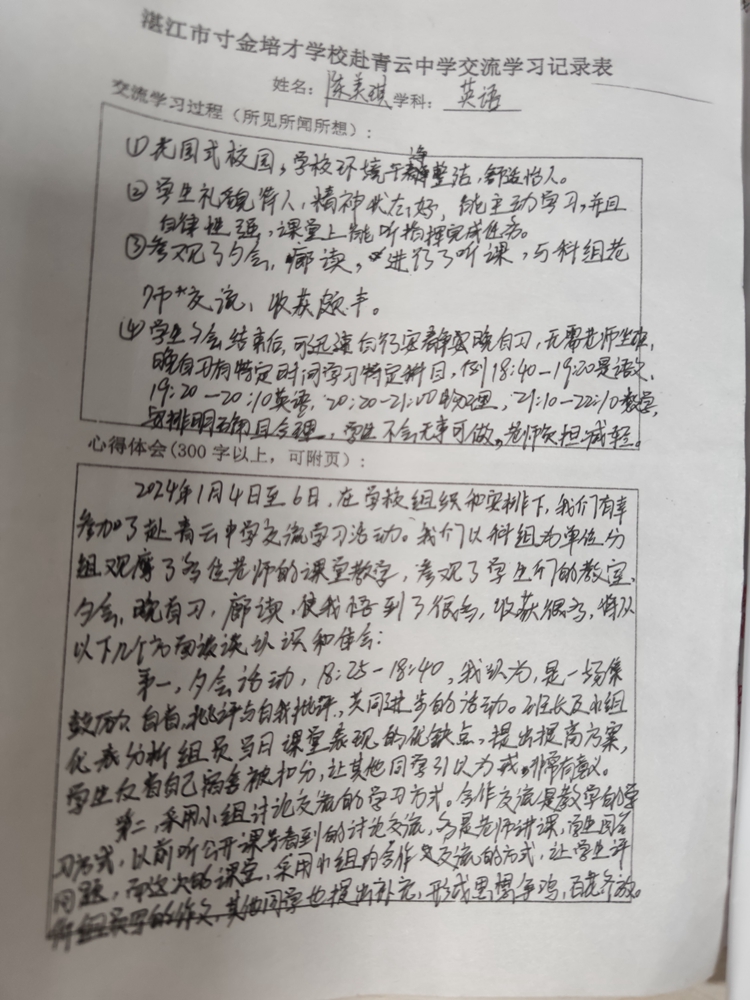 湛江市寸金培才学校赴青云中学交流学习记录表
姓名：陈美琪 学科：英语
交流学习过程（所见所闻所想）：
①花园式校园，学校环境干净整洁，舒适怡人。
②学生礼貌待人，精神状态好，能主动学习，并且
自律性强，课堂上能听指挥完成任务。
③参观了夕会，廊读，进行了听课，与科组老
师交流，收获颇丰。
④学生夕会结束后，可迅速自行安静晚自习，无需老师坐班，
晚自习有特定时间学习特定科目，例18:40—19:20是语文，
19:20—20:10英语，20:20—21:00物理，21:10—22:10数学，
安排明确且合理，学生不会无事可做，老师负担减轻。
心得体会(300字以上，可附页)：
2024年1月4日至6日，在学校组织和安排下，我们有幸
参加了赴青云中学交流学习活动。我们以科组为单位分
组观摩了各位老师的课堂教学，参观了学生们的教室、
夕会，晚自习，廊读，使我悟到了很多，收获很多，将从
以下几个方面谈谈认识和体会：
第一，夕会活动，18:25—18:40，我认为，是一场集
鼓励，自省，批评与自我批评，共同进步的活动。班长及小组
代表分析组员当日课堂表现的优缺点，提出提高方案，
学生反省自己宿舍被扣分，让其他同学引以为戒，非常有意义。
第二，采用小组讨论交流的学习方式。合作交流是教学的学
习方式，以前听公开课会看到的讨论交流，多是老师讲课，学生回答
问题，而这次的课堂，采用小组内合作交流的方式，让学生评
所写的作文，其他同学也提出补充，形成思想争鸣，百花齐放。